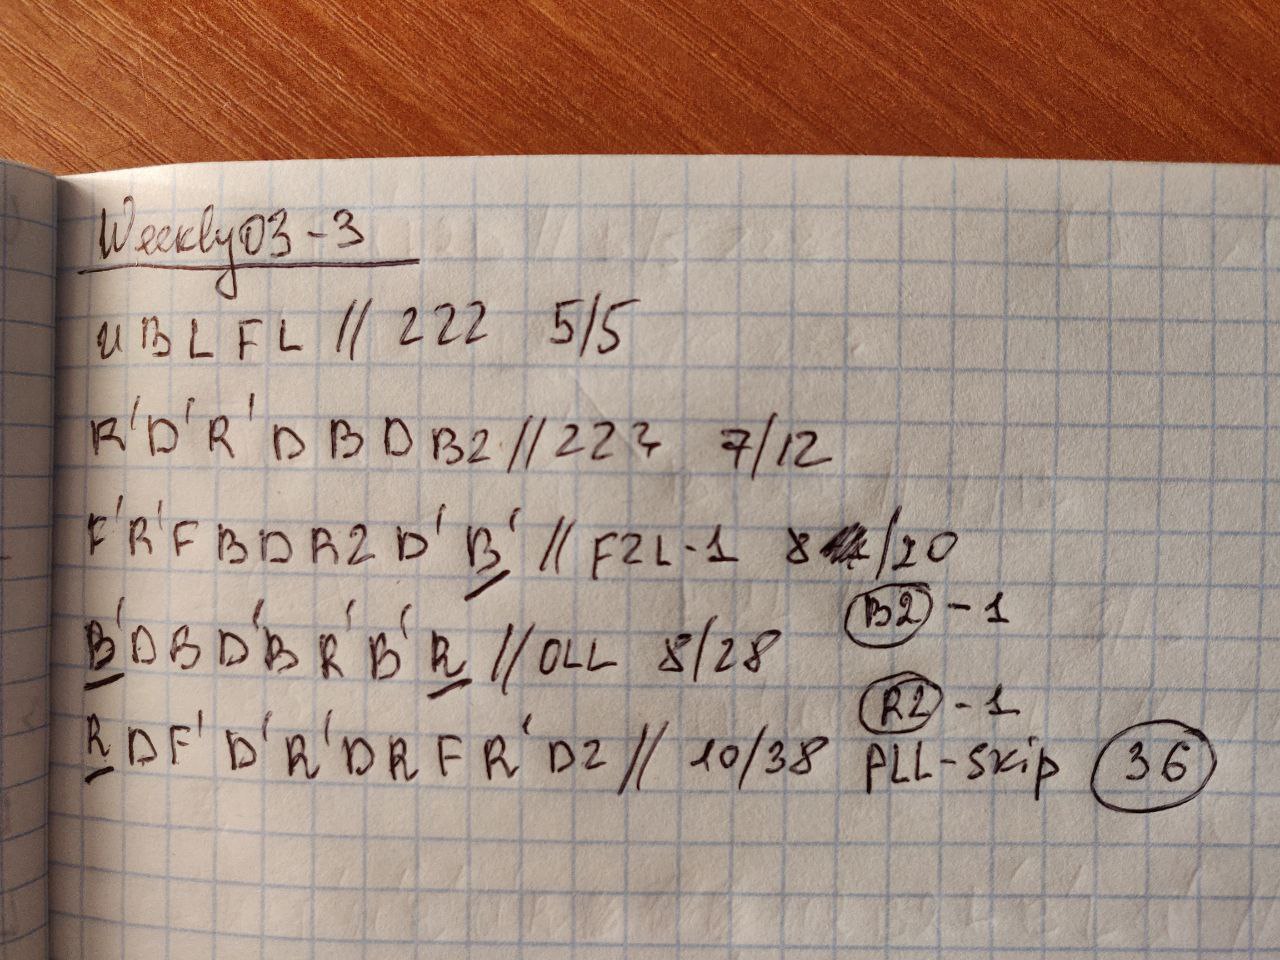 Weekly03-3
U B L F L // 222 5/5
R' D' R' D B D B2 // 222 7/12
F' R' F B D R2 D' B' // F2L-1 8 /20
B2 -1
B' D B D' B R' B' R // OLL 8/28
R2 -1
R D F' D' R' D R F R' D2 // 10/38 PLL-Skip 36